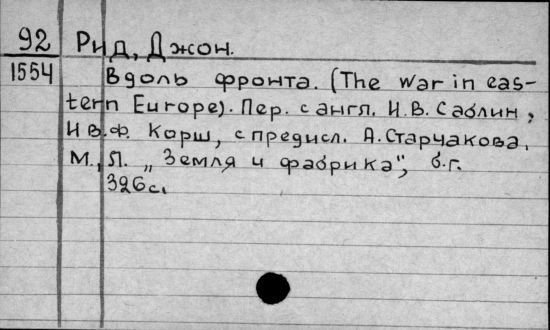 92 Рид, Джон.
1554 Вдоль фронта. (The war in eas-
tern Europe). Пер. с англ. И.В. Саблин,
И В.Ф. Корш, с предисл. А.Старчакова.
М., Л. „Земля и фабрика", б.г.
326с.